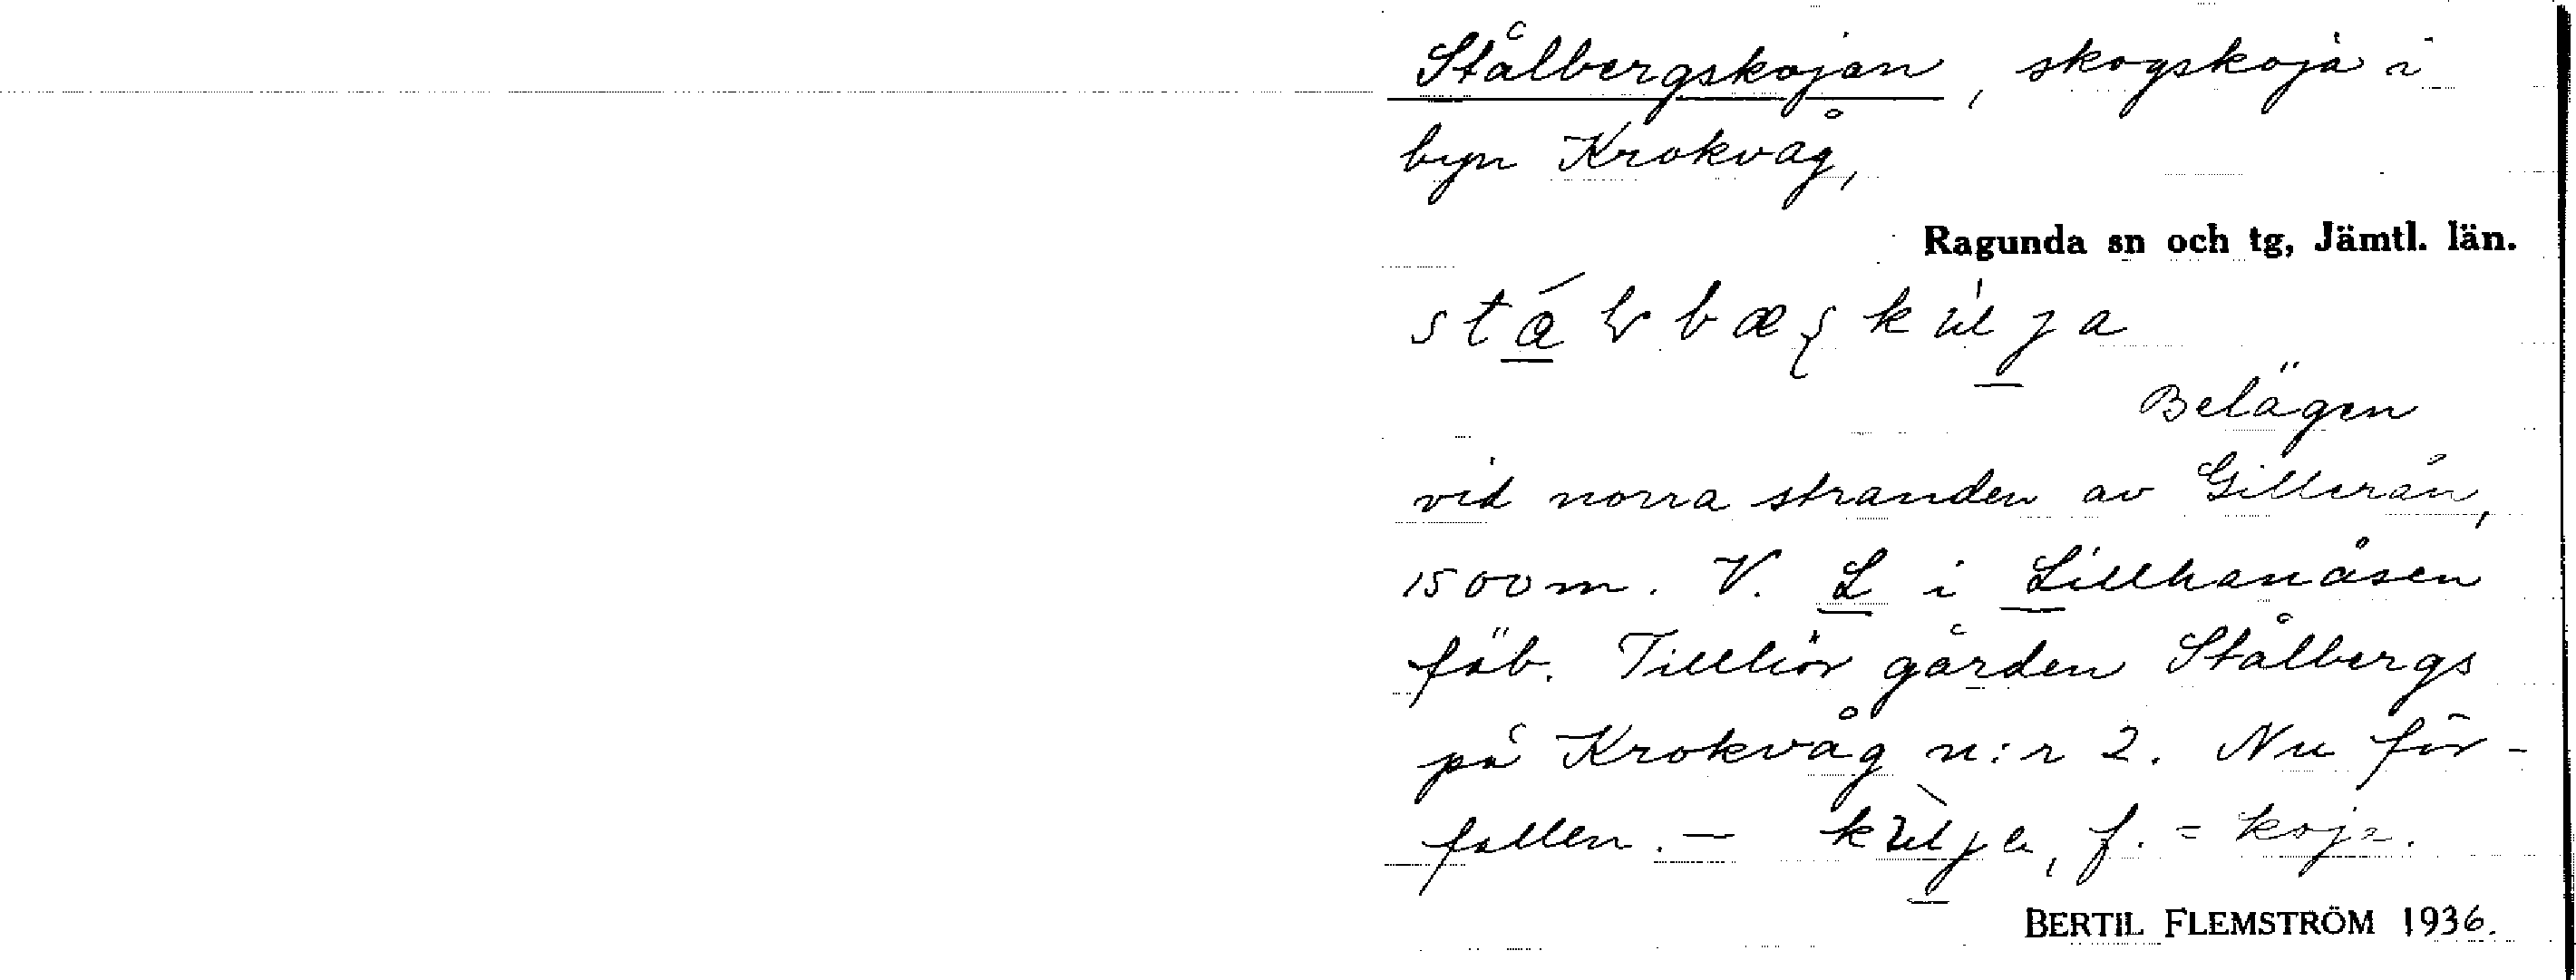 Stålbergskojan, skogskoja i
byn Krokvåg,
Ragunda sn och tg, Jämtl. län.
Belägen
vid norra stranden av Gillerån,
1500 m. V. L i Lillhanåsen
fäb. Tillhör gården Stålbergs
på Krokvåg n:r 2. Nu för-
fallen. — f. = koja.
BERTIL FLEMSTRÖM 1936.